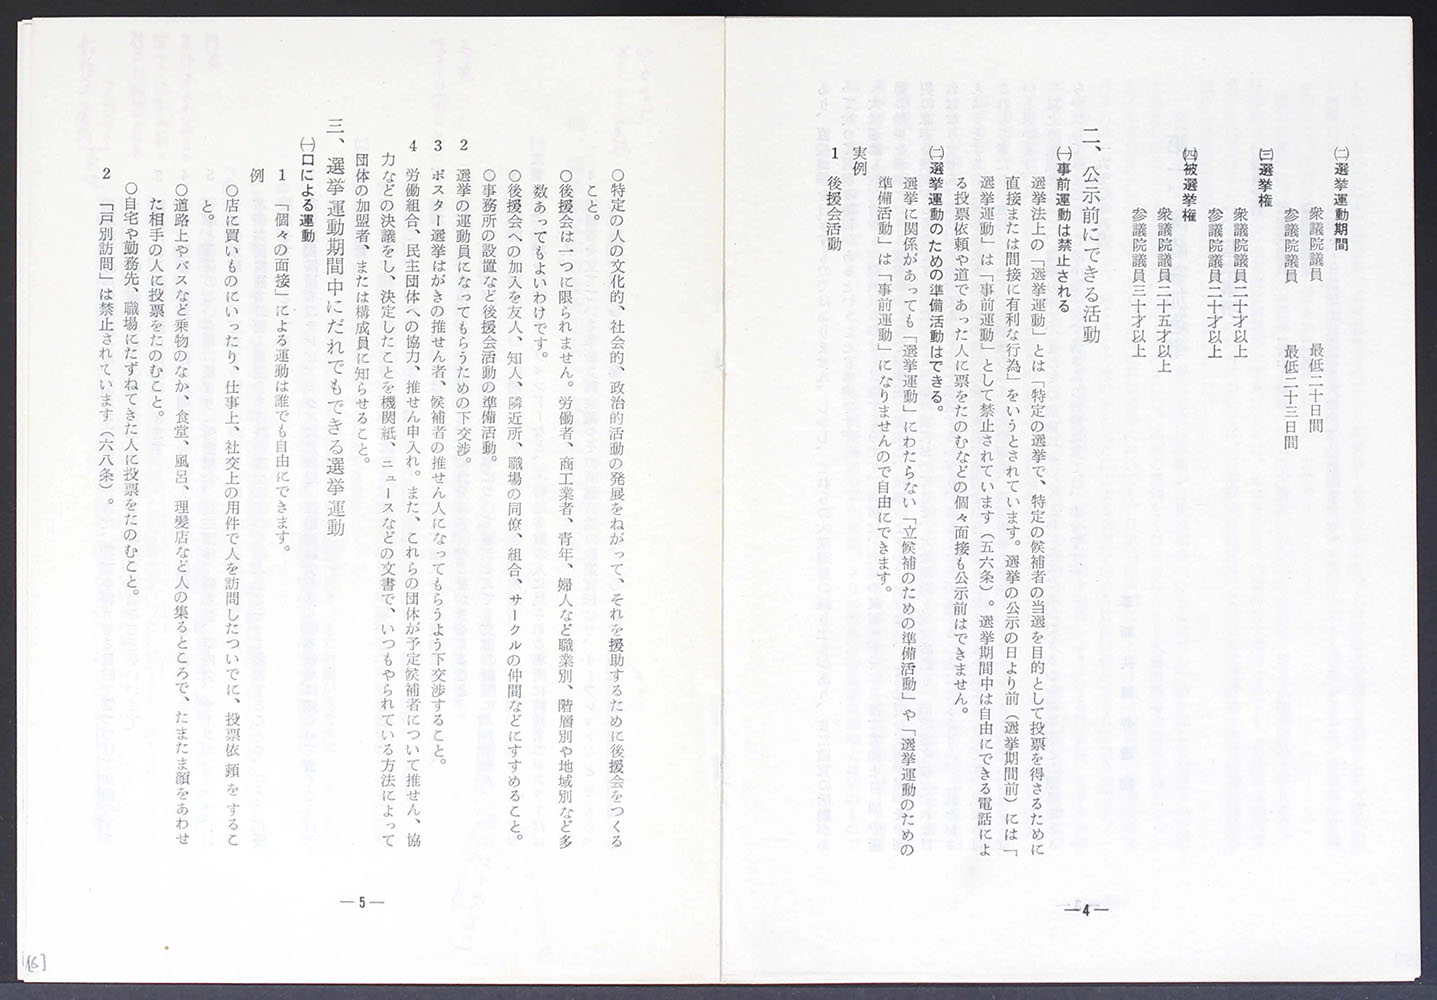 ㈡選挙運動期間
衆議院議員　最低二十日間
参議院議員　最低二十三日間
㈢選挙権
衆議院議員二十才以上
参議院議員二十才以上
㈣被選挙権
衆議院議員二十五才以上
参議院議員三十才以上
二、公示前にできる活動
㈠事前運動は禁止される
選挙法上の「選挙運動」とは「特定の選挙で、特定の候補者の当選を目的として投票を得さるために
直接または間接に有利な行為」をいうとされています。選挙の公示の日より前（選挙期間前）には「
選挙運動」は「事前運動」として禁止されています（五六条）。選挙期間中は自由にできる電話によ
る投票依頼や道であった人に票をたのむなどの個々面接も公示前はできません。
㈡選挙運動のための準備活動はできる。
選挙に関係があっても「選挙運動」にわたらない「立候補のための準備活動」や「選挙運動のための
準備活動」は「事前運動」になりませんので自由にできます。
実例
1　後援会活動
―4―
○特定の人の文化的、社会的、政治的活動の発展をねがって、それを援助するために後援会をつくる
こと。
○後援会は一つに限られません。労働者、商工業者、青年、婦人など職業別、階層別や地域別など多
数あってもよいわけです。
○後援会への加入を友人、知人、隣近所、職場の同僚、組合、サークルの仲間などにすすめること。
○事務所の設置など後援会活動の準備活動。
2　選挙の運動員になってもらうための下交渉。
3　ポスター選挙はがきの推せん者、候補者の推せん人になってもらうよう下交渉すること。
4　労働組合、民主団体への協力、推せん申入れ。また、これらの団体が予定候補者について推せん、協
力などの決議をし、決定したことを機関紙、ニュースなどの文書で、いつもやられている方法によって
団体の加盟者、または構成員に知らせること。
三、選挙運動期間中にだれでもできる選挙運動
㈠口による運動
1　「個々の面接」による運動は誰でも自由にできます。
例
○店に買いものにいったり、仕事上、社交上の用件で人を訪問したついでに、投票依頼をするこ
と。
○道路上やバスなど乗物のなか、食堂、風呂、理髪店など人の集るところで、たまたま顔をあわせ
た相手の人に投票をたのむこと。
○自宅や勤務先、職場にたずねてきた人に投票をたのむこと。
2　「戸別訪問」は禁止されています（六八条）。
―5―
[16]